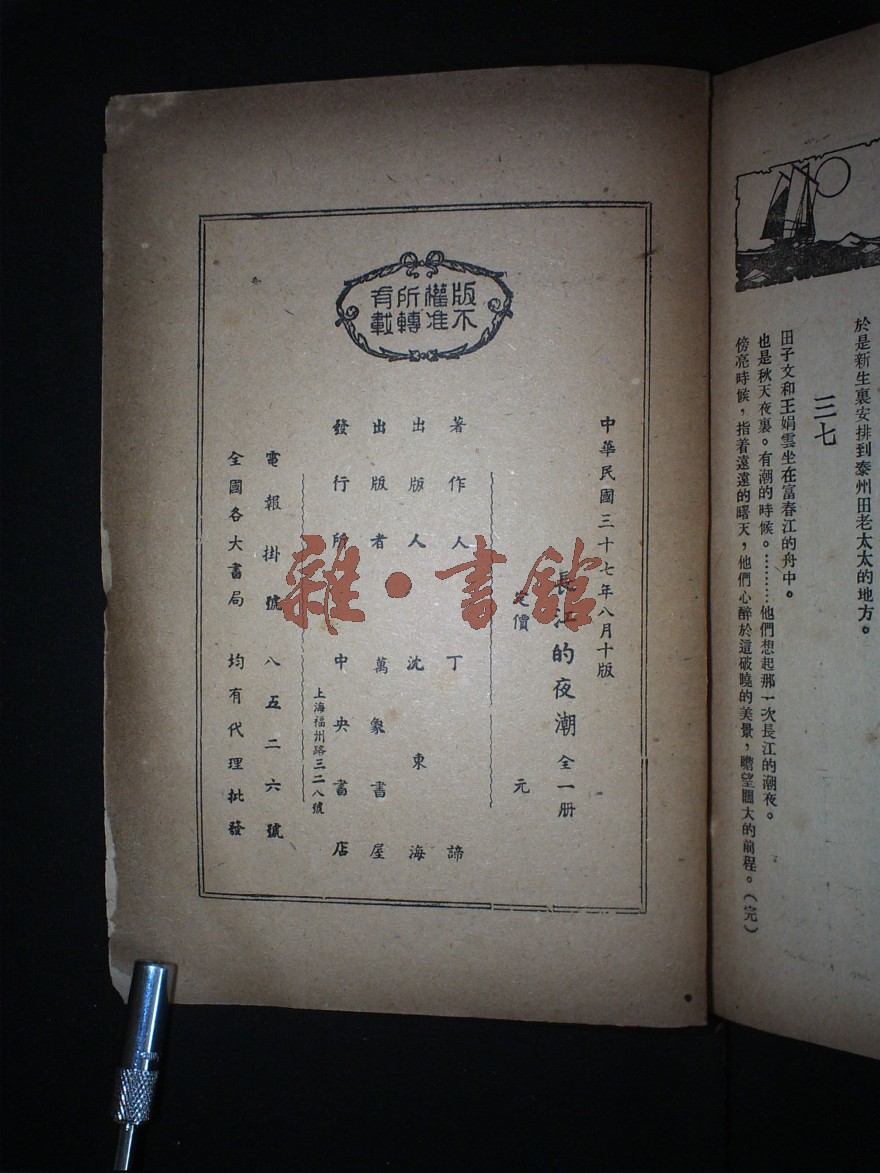 於是新生裏安排到泰州田老太太的地方。
三七
田子文和王娟雲坐在富春江的舟中。
也是秋天夜裏。有潮的時候。…………他們想起那一次長江的潮夜。
傍亮時候，指着遠遠的曙天，他們心醉於這破曉的美景，瞻望關大的前程。（完）
版權所有
不准轉載
中華民國三十七年八月十版
長江的夜潮 全一册
定價 元
著作人 丁諦
出版人 沈東海
出版者 萬象書屋
發行所 中央書店
上海福州路三二八號
電報掛號 八五二六號
全國各大書局 均有代理批發
雜·書館